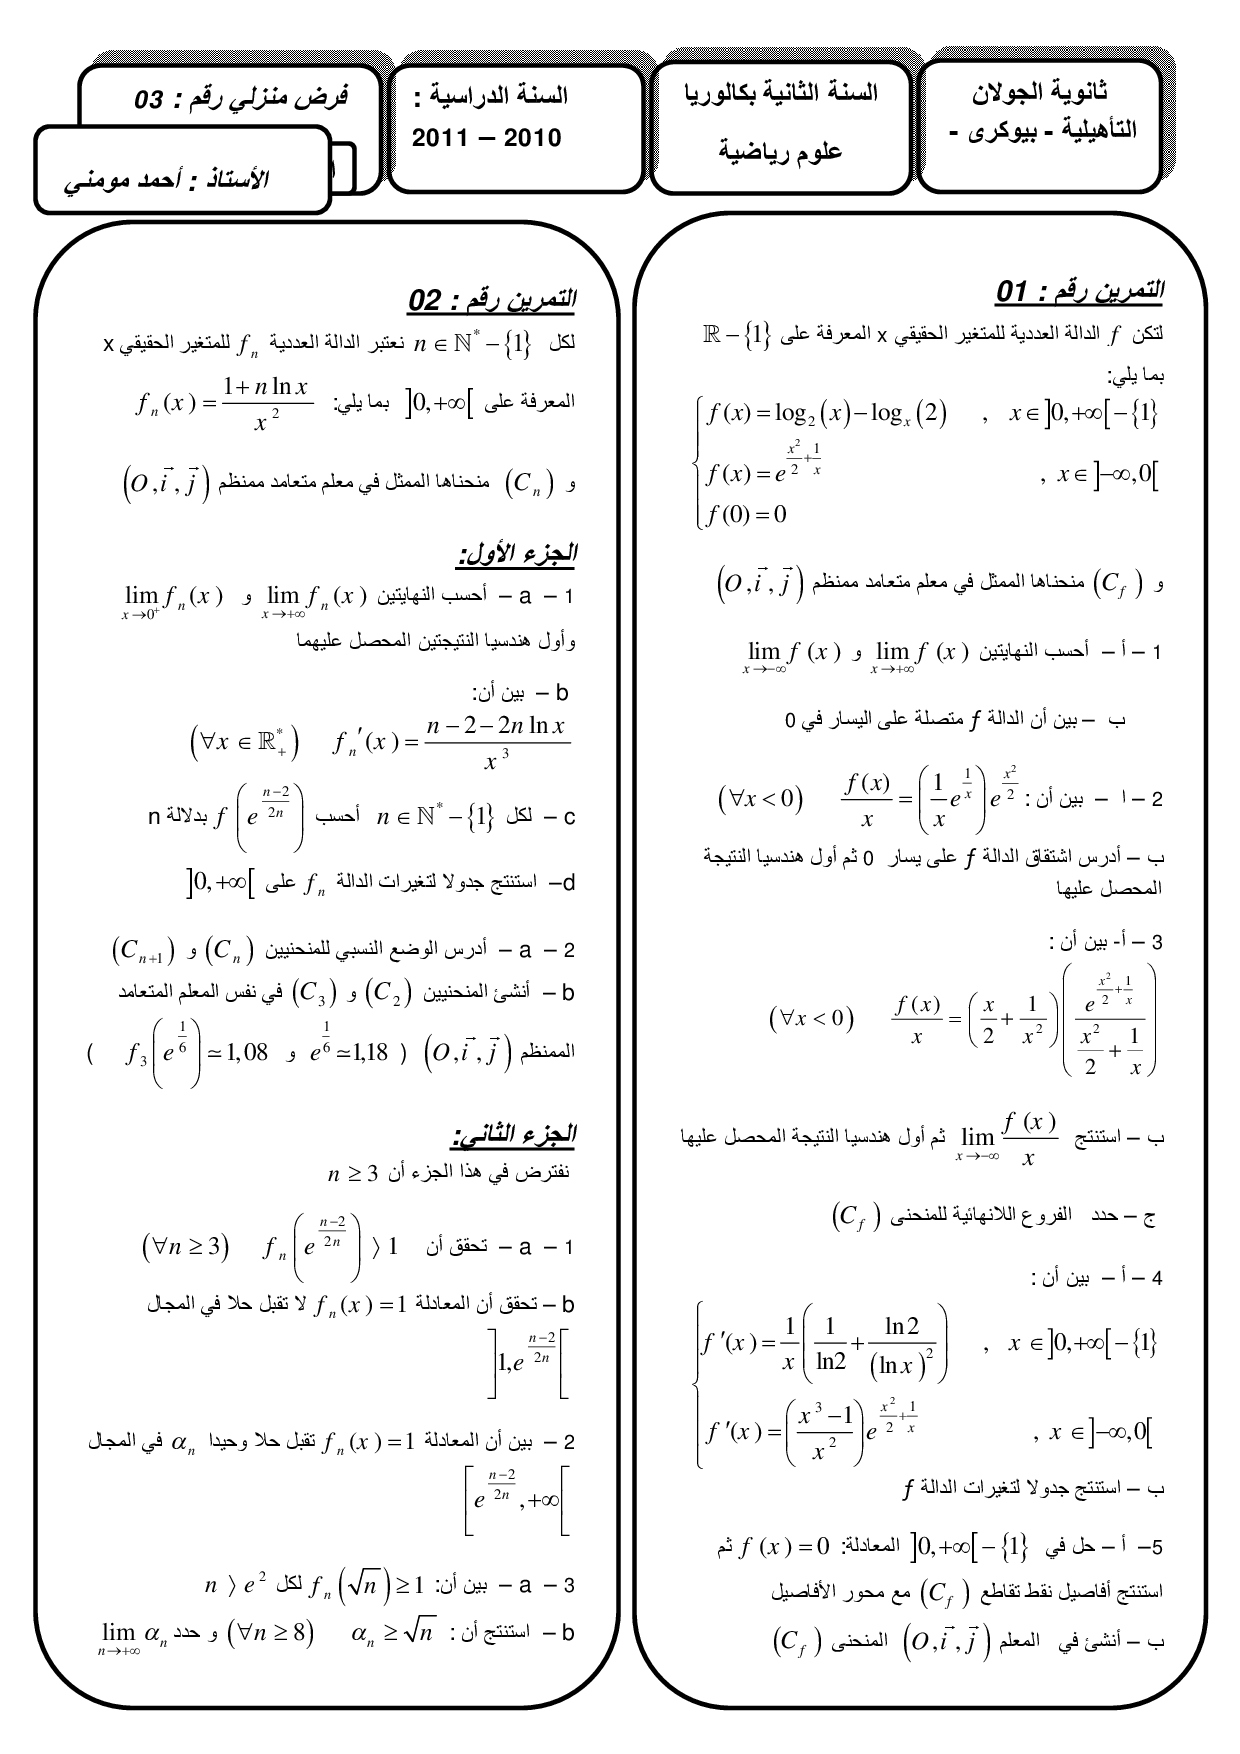 ثانوية الجولان
التأهيلية - بيوكرى -
السنة الثانية بكالوريا
علوم رياضية
السنة الدراسية :
2010 – 2011
فرض منزلي رقم : 03
الأستاذ : أحمد مومني
التمرين رقم : 01
لتكن f الدالة العددية للمتغير الحقيقي x المعرفة على ℝ − {1}
بما يلي:
f(x) = log₂(x) − logₓ(2) , x ∈ ]0,+∞[ − {1}
f(x) = e^(x²/2 + 1/x) , x ∈ ]−∞,0[
f(0) = 0
و (C_f) منحناها الممثل في معلم متعامد ممنظم (O, i⃗, j⃗)
1 – أ – أحسب النهايتين lim_{x→+∞} f(x) و lim_{x→−∞} f(x)
ب – بين أن الدالة f متصلة على اليسار في 0
2 – ا – بين أن : (∀x < 0) f(x)/x = (1/x e^(1/x)) e^(x²/2)
ب – أدرس اشتقاق الدالة f على يسار 0 ثم أول هندسيا النتيجة
المحصل عليها
3 – أ- بين أن :
(∀x < 0) f(x)/x = (x/2 + 1/x²) (e^(x²/2 + 1/x) / (x²/2 + 1/x))
ب – استنتج lim_{x→−∞} f(x)/x ثم أول هندسيا النتيجة المحصل عليها
ج – حدد الفروع اللانهائية للمنحنى (C_f)
4 – أ – بين أن :
f′(x) = 1/x (1/ln2 + ln2/(ln x)²) , x ∈ ]0,+∞[ − {1}
f′(x) = ((x³ − 1)/x²) e^(x²/2 + 1/x) , x ∈ ]−∞,0[
ب – استنتج جدولا لتغيرات الدالة f
5– أ – حل في ]0,+∞[ − {1} المعادلة: f(x) = 0 ثم
استنتج أفاصيل نقط تقاطع (C_f) مع محور الأفاصيل
ب – أنشئ في المعلم (O, i⃗, j⃗) المنحنى (C_f)
التمرين رقم : 02
لكل n ∈ ℕ* − {1} نعتبر الدالة العددية f_n للمتغير الحقيقي x
المعرفة على ]0,+∞[ بما يلي: f_n(x) = (1 + n ln x)/x²
و (C_n) منحناها الممثل في معلم متعامد ممنظم (O, i⃗, j⃗)
الجزء الأول:
1 – a – أحسب النهايتين lim_{x→+∞} f_n(x) و lim_{x→0⁺} f_n(x)
وأول هندسيا النتيجتين المحصل عليهما
b – بين أن:
(∀x ∈ ℝ₊*) f_n′(x) = (n − 2 − 2n ln x)/x³
c – لكل n ∈ ℕ* − {1} أحسب f(e^((n−2)/2n)) بدلالة n
d– استنتج جدولا لتغيرات الدالة f_n على ]0,+∞[
2 – a – أدرس الوضع النسبي للمنحنيين (C_n) و (C_{n+1})
b – أنشئ المنحنيين (C₂) و (C₃) في نفس المعلم المتعامد
الممنظم (O, i⃗, j⃗) ( e^(1/6) ≃ 1,18 و f₃(e^(1/6)) ≃ 1,08 )
الجزء الثاني:
نفترض في هذا الجزء أن n ≥ 3
1 – a – تحقق أن f_n(e^((n−2)/2n)) ⟩ 1 (∀n ≥ 3)
b – تحقق أن المعادلة f_n(x) = 1 لا تقبل حلا في المجال
]1, e^((n−2)/2n)[
2 – بين أن المعادلة f_n(x) = 1 تقبل حلا وحيدا α_n في المجال
[e^((n−2)/2n), +∞[
3 – a – بين أن: f_n(√n) ≥ 1 لكل n ⟩ e²
b – استنتج أن : α_n ≥ √n (∀n ≥ 8) و حدد lim_{n→+∞} α_n